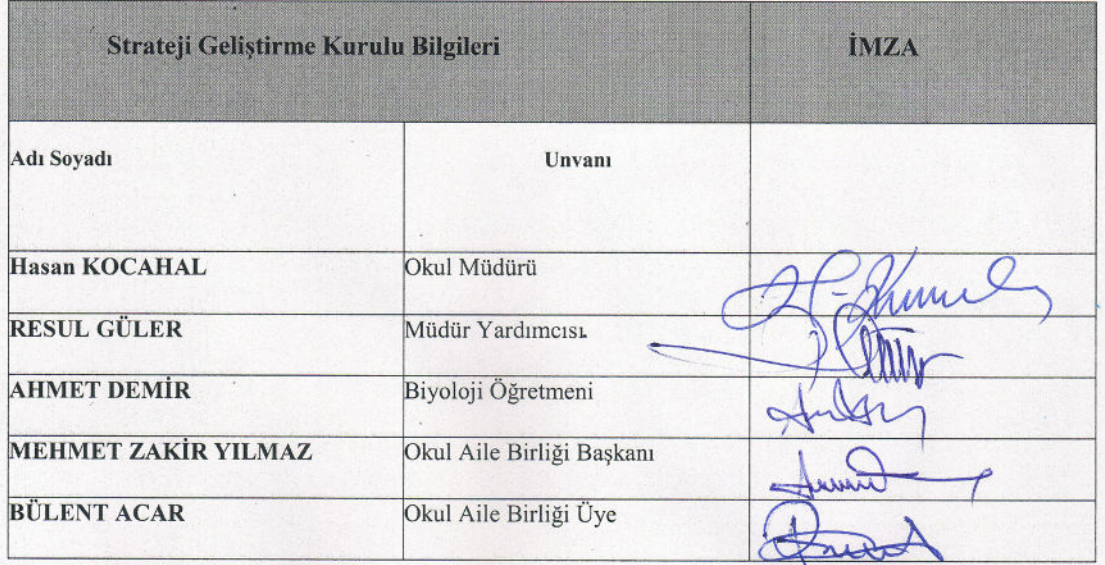 Strateji Geliştirme Kurulu Bilgileri İMZA
Adı Soyadı Unvanı
Hasan KOCAHAL Okul Müdürü
RESUL GÜLER Müdür Yardımcısı
AHMET DEMİR Biyoloji Öğretmeni
MEHMET ZAKİR YILMAZ Okul Aile Birliği Başkanı
BÜLENT ACAR Okul Aile Birliği Üye